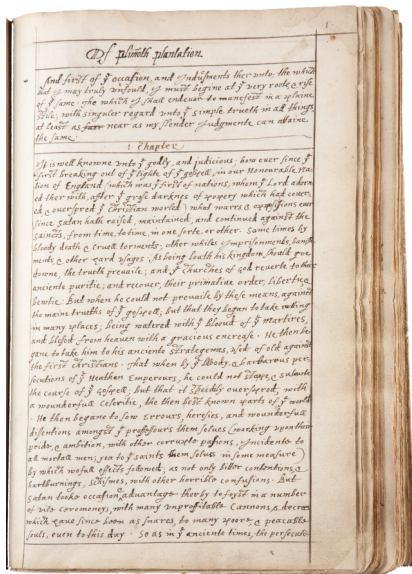 1
Of plimoth plantation.
And first of yͤ occasion, and Indusments ther unto; the which
that I may truly unfould, I must begine at yͤ very roote, & rise
of yͤ same. The which I shall endevor to manefest in a plaine
stile; with singuler regard unto yͤ simple trueth in all things,
at least as far near as my slender Judgmente can attaine
the same.
1 Chapter
It is well knowne unto yͤ godly, and judicious; how ever since yͤ
first breaking out of yͤ light of yͤ gospell, in our Honourable Na-
tion of England (which was yͤ first of nations, whom yͤ Lord adorn-
ed ther with, after yͤ grose darknes of popery which had cover-
ed, & overspred yͤ Christian worled) what warrs, & oppissions ever
since satan hath raised, maintained, and continued against the
saincts, from time, to time, in one sorte, or other. Some times by
bloody death & cruell torments; other whiles Imprisonments, banish-
ments, & other hard usages. As being loath his kingdom should goe
downe, the trueth prevaile; and yͤ Churches of god reverte to their
anciente puritie; and recover, their primative order, libertie, &
bewtie. But when he could not prevaile by these means, against
the maine trueths of yͤ gospell, but that they began to take rooting
in many places; being watered with yͤ bloud of yͤ martires,
and blesed from heaven with a gracious encrease. He then be-
gane to take him to his anciente strategemes, used of old against
the first Christians. That when by yͤ bloody, & barbarous per-
secutions of yͤ Heathen Emperours, he could not stoppe, & subuerte
the course of yͤ gospell; but that it speedily overspred, with
a wounderfull Celeritie, the then best known parts of yͤ world.
He then begane to sow errours, heresies, and wounderfull
disentions amongst yͤ professours them selves (working upon their
pride, & ambition, with other corrupte passions, Incidente to
all mortall men; yea to yͤ saints them selves in some measure)
by which wofull effects followed; as not only bitter contentions, &
hartburnings, schismes, with other horrible confusions. But
satan tooke occasion & advantage therby to foyst in a number
of vile ceremoneys, with many unprofitable Cannons, & decrees
which have since been as snares, to many poore, & peaceable
souls, even to this day. So as in yͤ anciente times, the persecutio